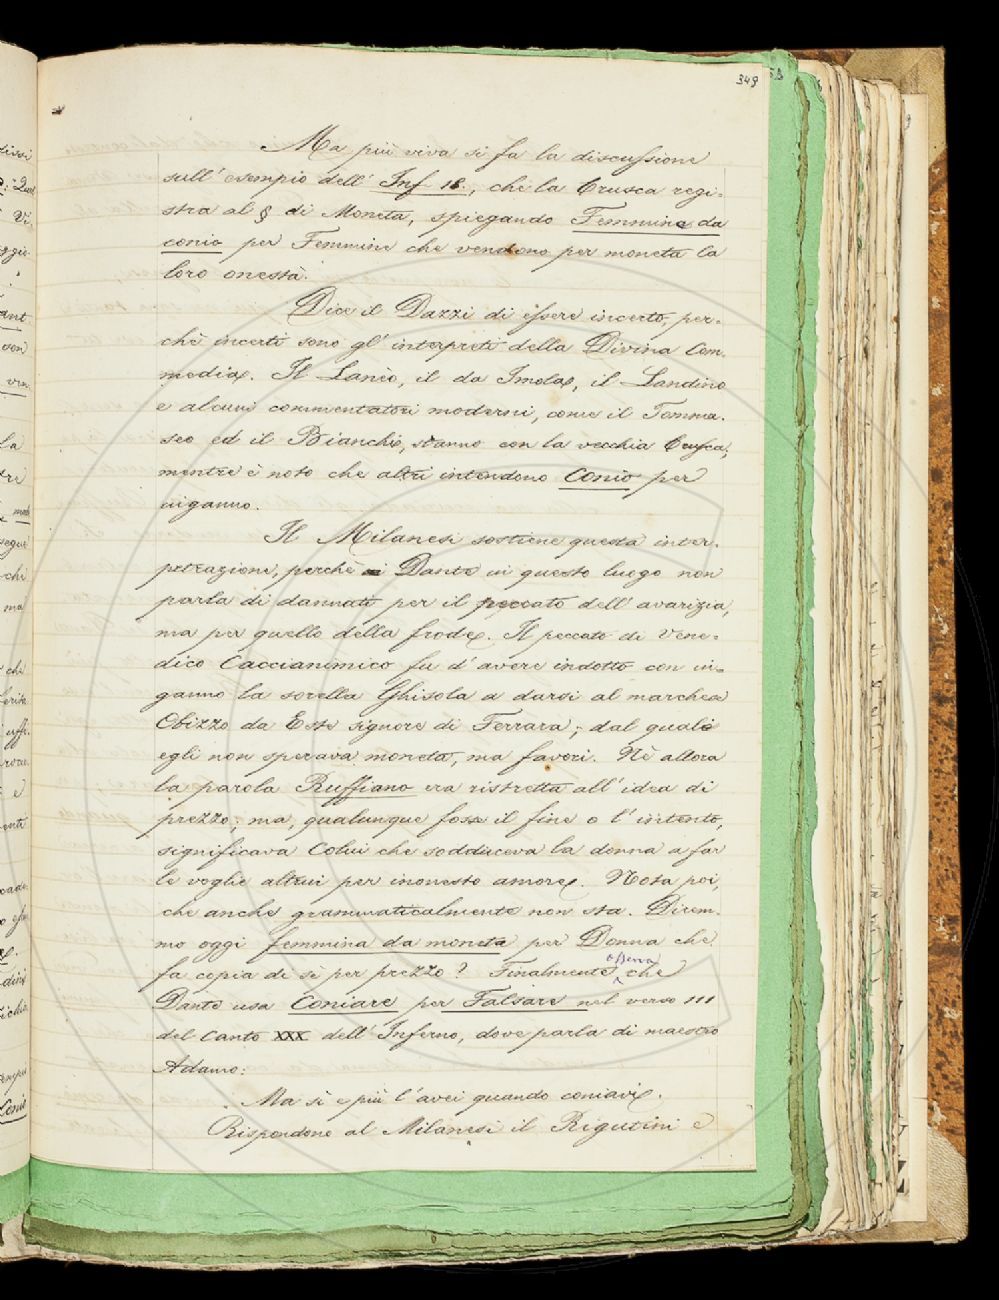 349
Ma più viva si fa la discussione
sull' esempio dell' Inf. 18., che la Crusca regi-
stra al § di Moneta, spiegando Femmine da
conio per Femmine che vendono per moneta la
loro onestà.
Dice il Dazzi di essere incerto, per-
chè incerti sono gl' interpreti della Divina Com-
media. Il Lanèo, il da Imola, il Landino
e alcuni commentatori moderni, come il Tomma-
seo ed il Bianchi, stanno con la vecchia Crusca,
mentre è noto che altri intendono Conio per
inganno.
Il Milanesi sostiene questa inter-
petrazione, perchè Dante in questo luogo non
parla di dannati per il peccato dell' avarizia,
ma per quello della frode. Il peccato di Vene-
dico Caccianimico fu d' avere indotto con in-
ganno la sorella Ghisola a darsi al marchese
Obizzo da Este signore di Ferrara; dal quale
egli non sperava moneta, ma favori. Nè allora
la parola Ruffiano era ristretta all' idea di
prezzo; ma, qualunque fosse il fine o l' intento,
significava Colui che sodduceva la donna a far
le voglie altrui per inonesto amore. Nota poi,
che anche grammaticalmente non sta. Direm-
mo oggi femmina da moneta per Donna che
fa copia di sè per prezzo? Finalmente osserva che
Dante usa Coniare per Falsare nel verso 111
del Canto XXX dell' Inferno, dove parla di maestro
Adamo:
Ma sì e più l' avei quando coniavi.
Rispondono al Milanesi il Rigutini e